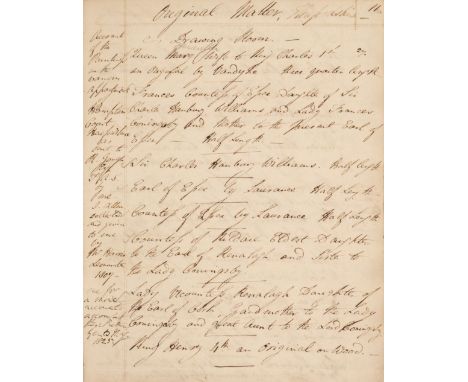 Original Matter, 11.
Drawing Room. —
Queen Mary Wife to King Charles 1st
an original by Vandyke three quarter length
Frances Countess of Essex Daughter of Sir
Charles Hanbury Williams and Lady Frances
Coningsby and Mother to the present Earl of
Essex — Half Length —
Sir Charles Hanbury Williams. Half length
Earl of Essex by Laurance Half Length
Countess of Essex by Laurance Half Length
Countess of Kildare Eldest Daughter
to the Earl of Ranalagh and Sister to
the Lady Coningsby
Lady Viscountess Ranalagh Daughter of
the Earl of Cork. Godmother to the Lady
Coningsby and Great Aunt to the Lord Coningsby
King Henry 4th an Original on Wood. —
Account
of the
Paintings
in the
various
apartments
Hampton
Court
Herefordshire
was
sent to
the
by
me
collected
and given
to me
by
1807
see for
a more
account
1825